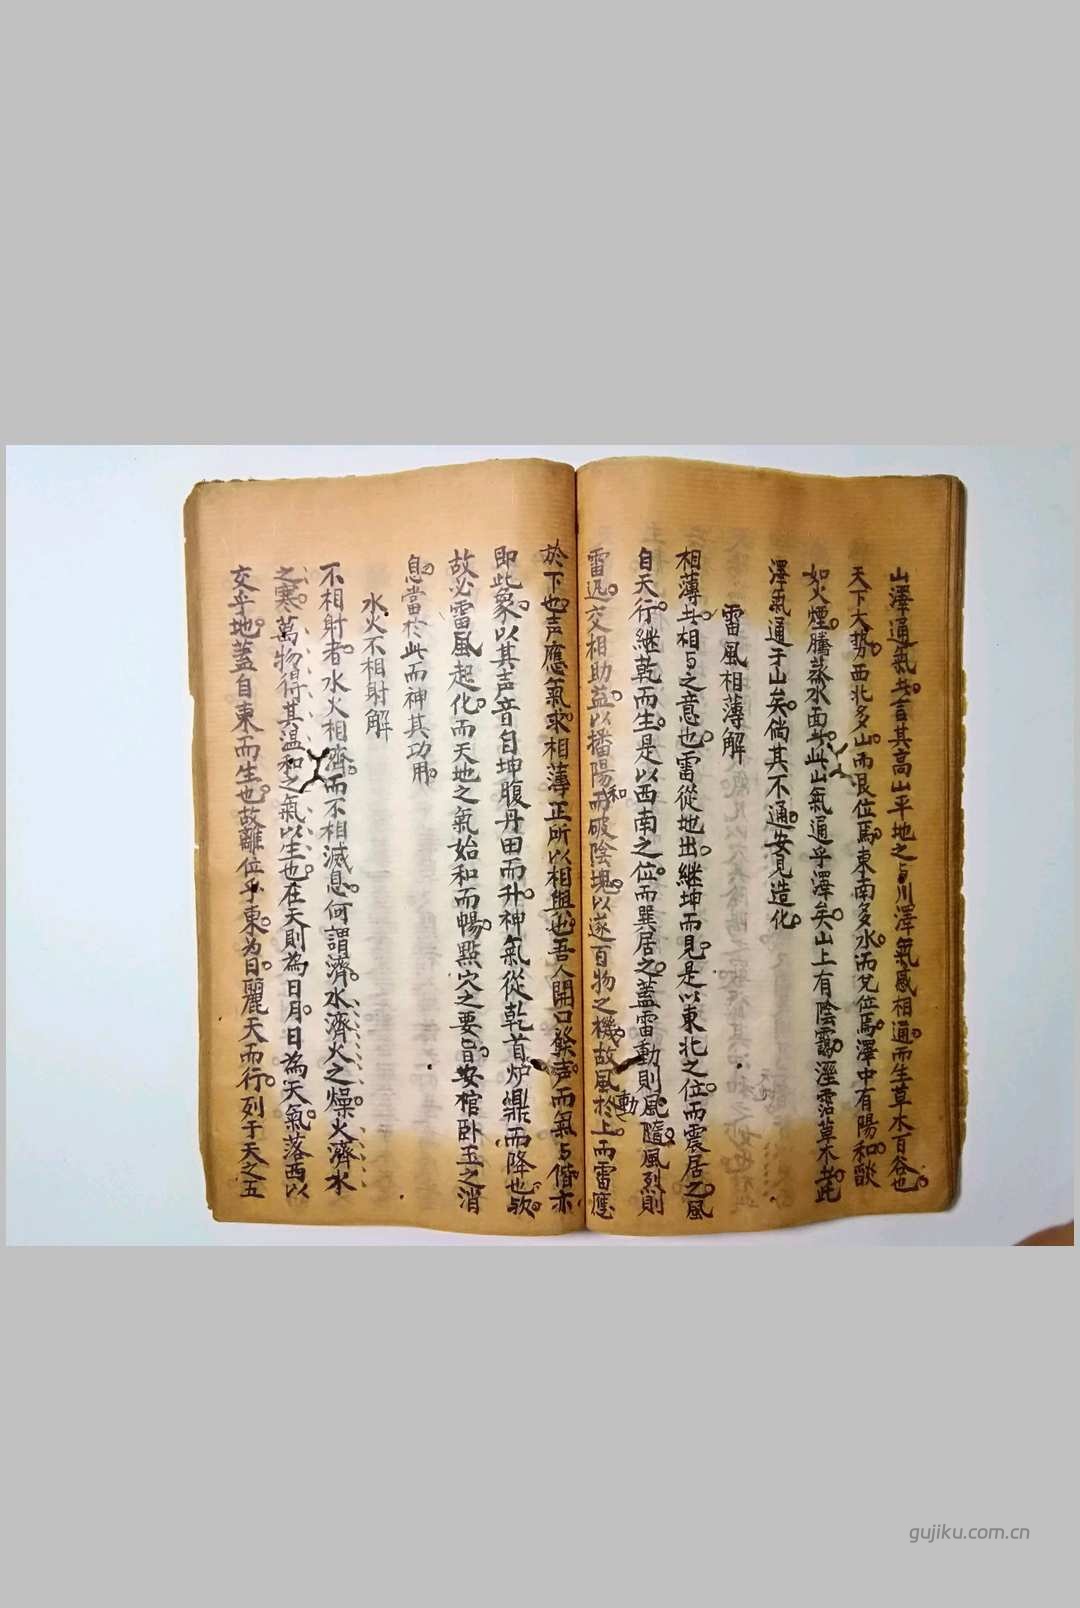 山澤通氣共言其高山平地之与川澤氣感相通而生草木百谷也
天下大勢西北多山而艮位焉東南多水而兌位焉澤中有陽和
如火煙騰蒸水面此山氣通乎澤矣山上有陰靄溼霑草木者此
澤氣通于山矣倘其不通安見造化
雷風相薄解
相薄共相与之意也雷從地出継坤而見是以東北之位而震居之風
自天行継乾而生是以西南之位而巽居之蓋雷動則風隨風烈則
雷迅交相助益以播陽和而破陰塊以遂百物之機故風於上而雷應
動
於下也声應氣求相薄正所以相與也吾人開口發声而氣与偕亦
即此象以其声音自坤腹丹田而升神氣從乾首炉鼎而降也
故必雷風起化而天地之氣始和而暢點穴之要旨安棺卧玉之消
息當於此而神其功用
水火不相射解
不相射者水火相濟而不相滅息何謂濟水濟火之燥火濟水
之寒萬物得其温和之氣以生也在天則為日月日為天氣落西以
交乎地蓋自東而生也故離位乎東為日麗天而行列于天之五
gujiku.com.cn